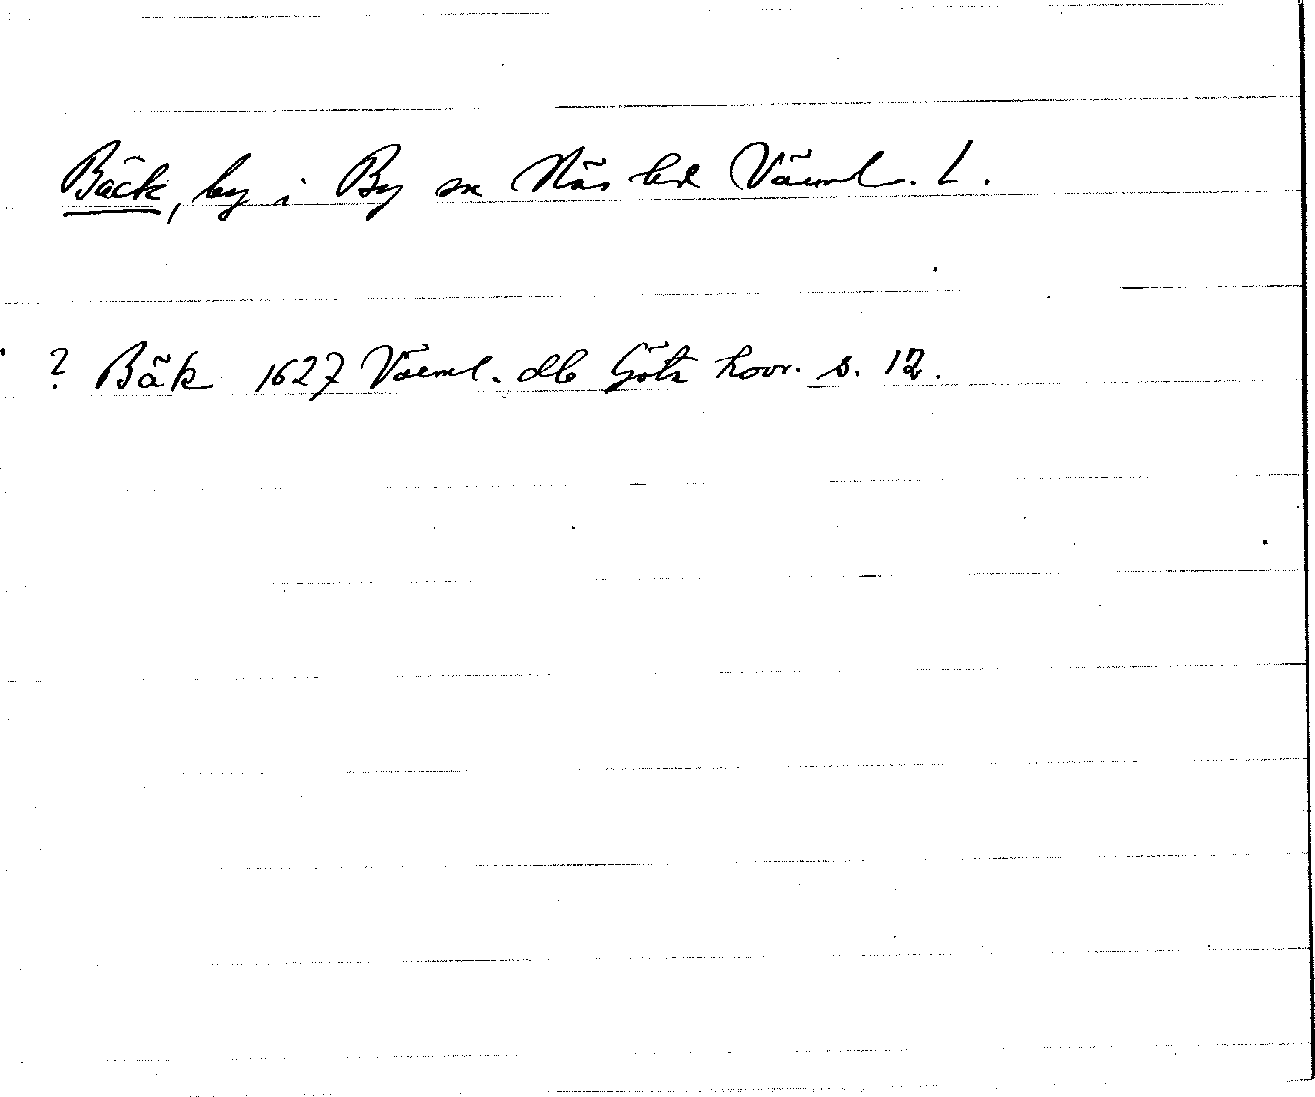 Bäck, by i By sn Näs hd Värml. L.
? Bäk 1627 Värml. db Göta hovr. s. 12.